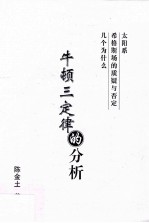 太阳系
希格斯场的质疑与否定
几个为什么
牛顿三定律的分析
陈金土